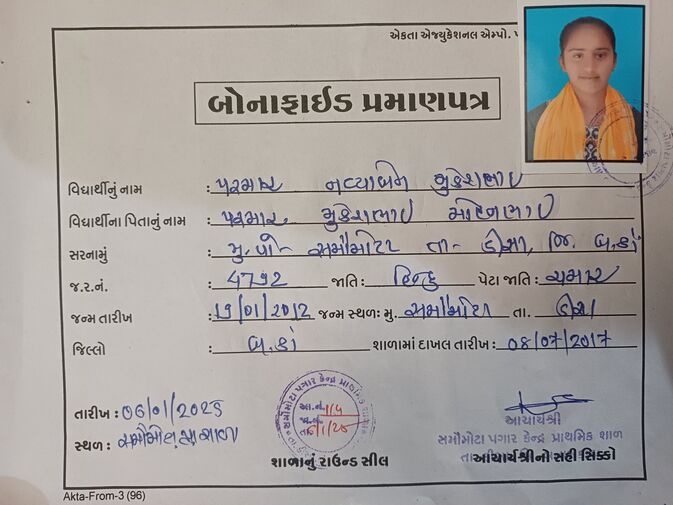 એકતા એજ્યુકેશનલ એમ્પો.
બોનાફાઈડ પ્રમાણપત્ર
વિદ્યાર્થીનું નામ : પરમાર નવ્યાબેન મુકેશભાઈ
વિદ્યાર્થીના પિતાનું નામ : પરમાર મુકેશભાઈ મોહનભાઈ
સરનામું : મુ. પો- સમૌમોટા તા- ડીસા, જિ. બ.કાં
જ.ર.નં. : 4792 જાતિ : હિન્દુ પેટા જાતિ : ચમાર
જન્મ તારીખ : 19/01/2012 જન્મ સ્થળ: મુ. સમૌમોટા તા. ડીસા
જિલ્લો : બ.કાં શાળામાં દાખલ તારીખ : 08/07/2017
તારીખ : 06/01/2025
સ્થળ : સમૌમોટા
આ.નં. 114
જા.
તા.
શાળાનું રાઉન્ડ સીલ
આચાર્યશ્રી
સમૌમોટા પગાર કેન્દ્ર પ્રાથમિક શાળ
આચાર્યશ્રીનો સહી સિક્કો
Akta-From-3 (96)